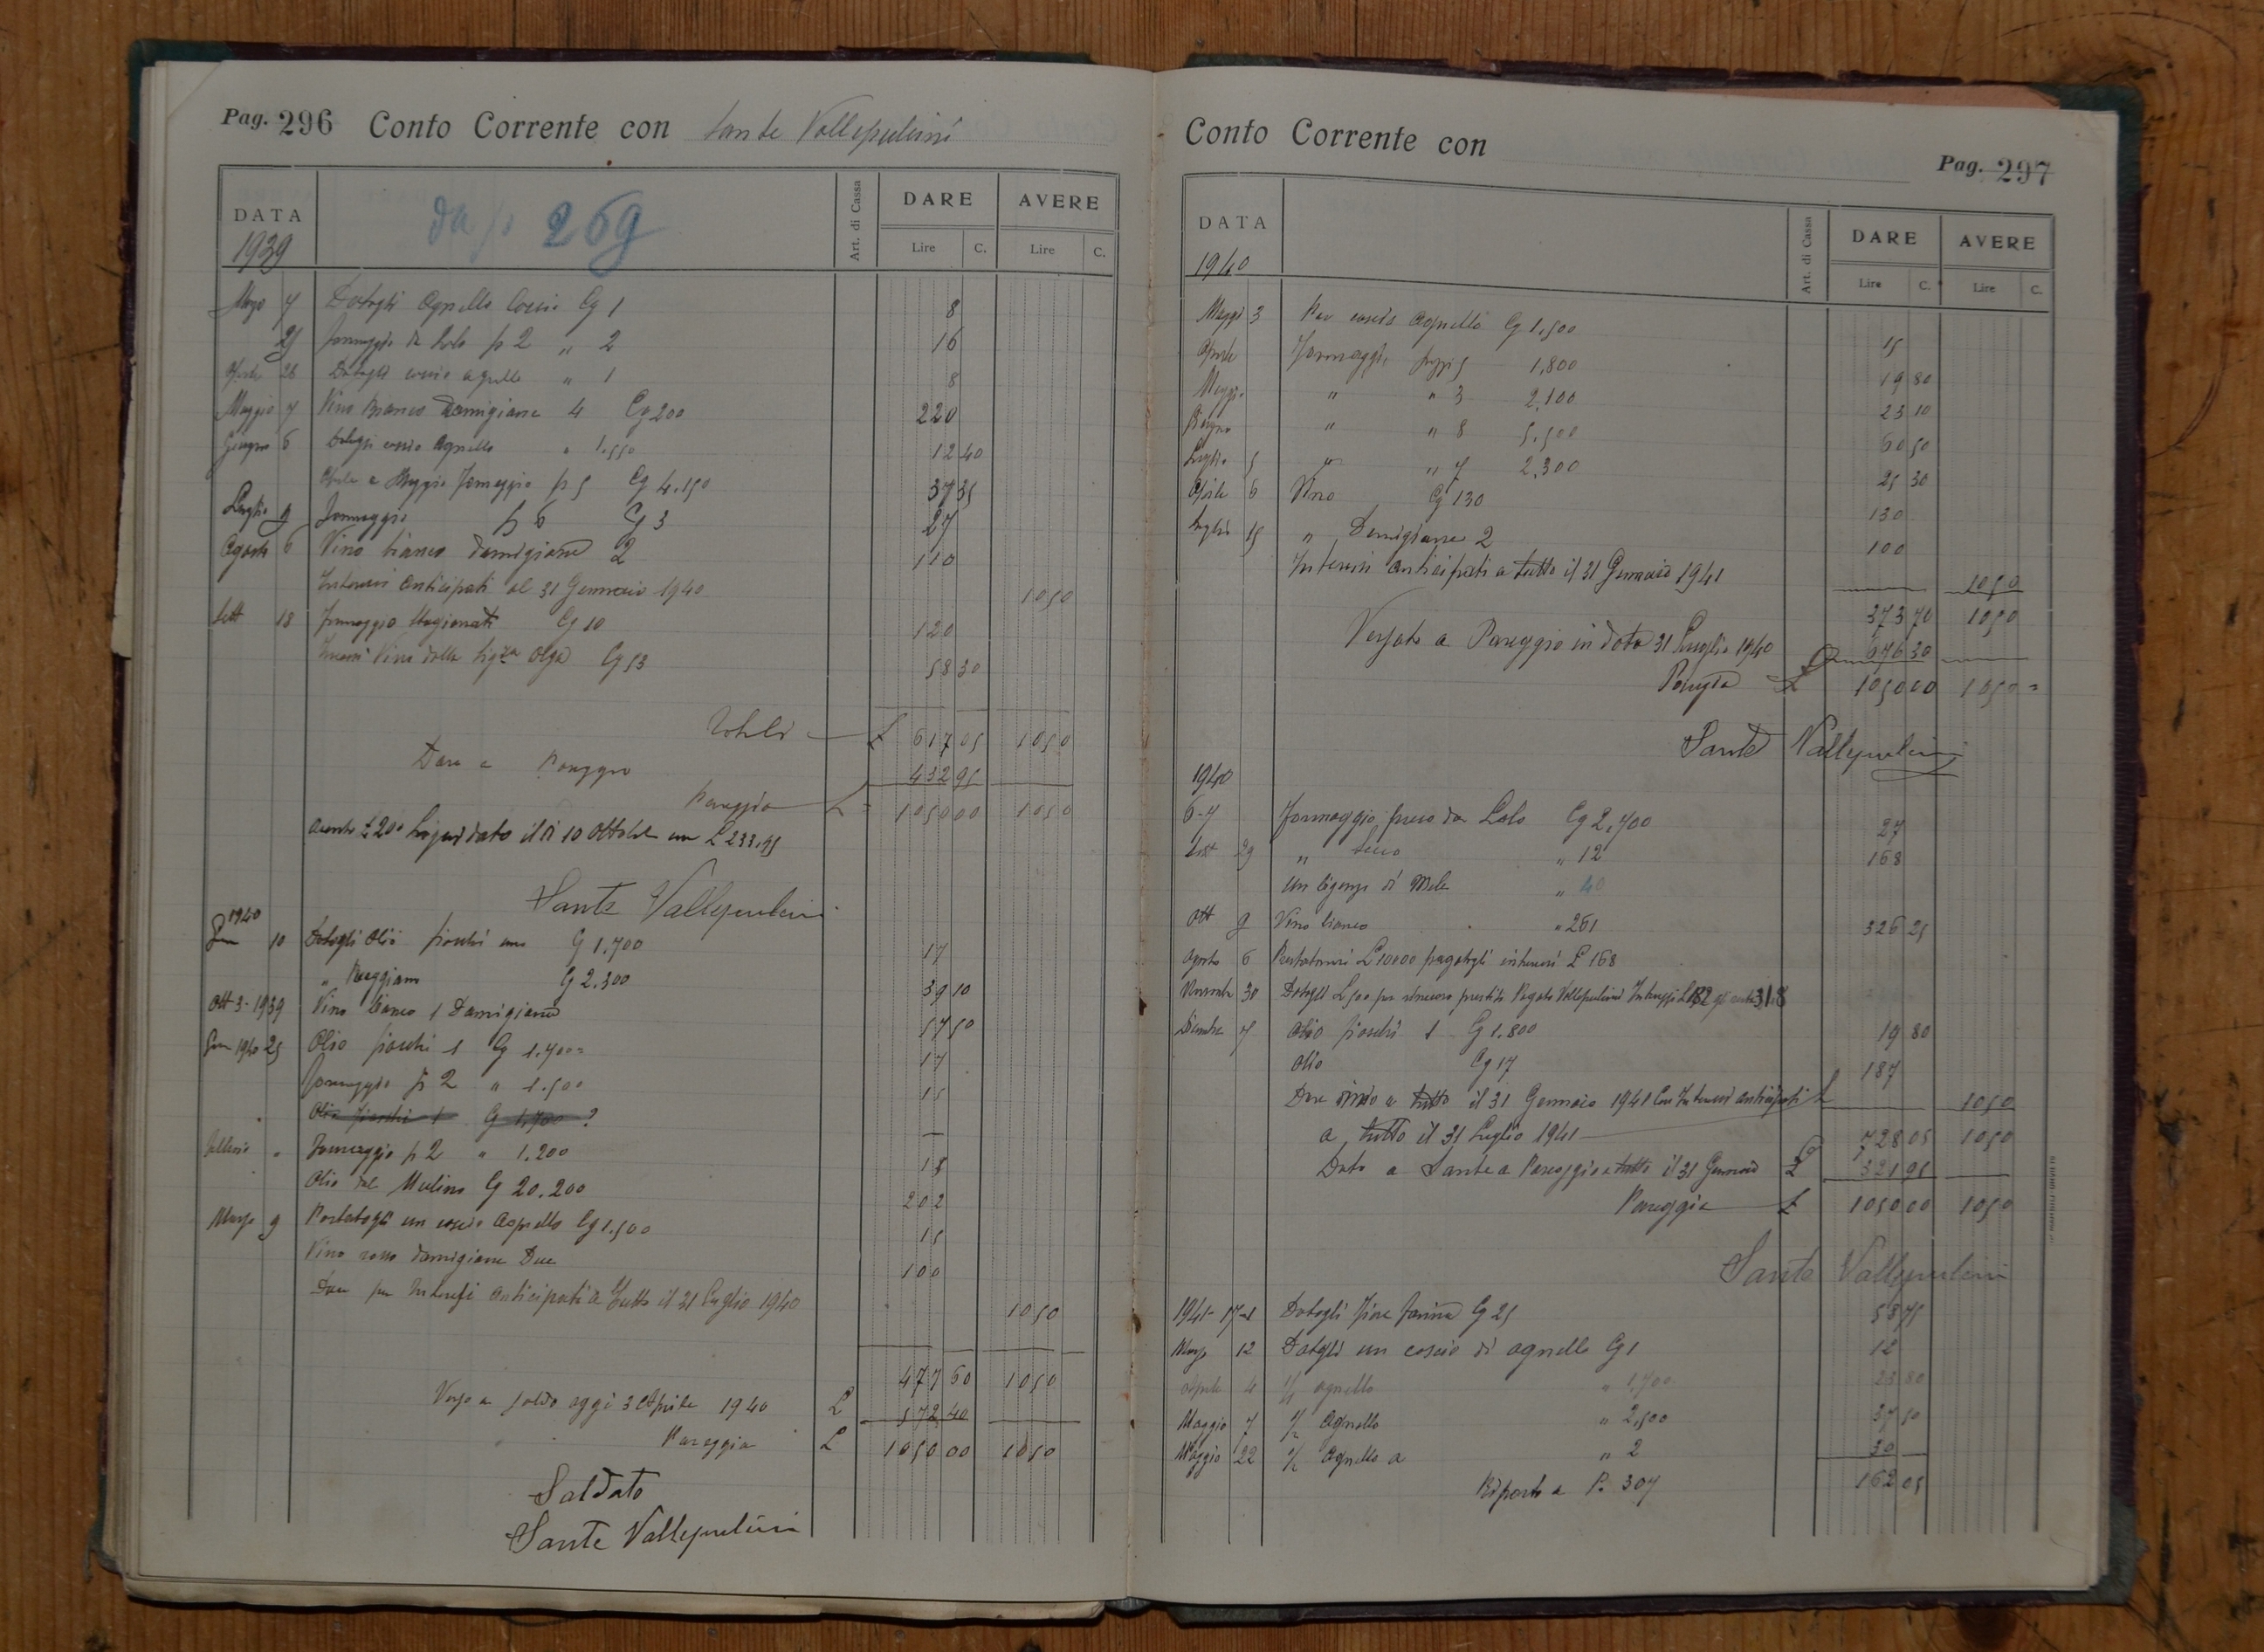 Pag. 296 Conto Corrente con Sante Vallepulcini
DATA Art. di Cassa DARE AVERE
1939 da p 269 Lire C. Lire C.
Marzo 7 Datogli Agnello Coscio Cg 1 8
25 formaggio da Lolo p 2 " 2 16
Aprile 26 Datogli coscio agnello " 1 8
Maggio 7 Vino Bianco Damigiane 4 Cg 200 220
Giugno 6 Datogli coscio Agnello " 1.550 12 40
Aprile e Maggio Formaggio p 5 Cg 4.150 37 35
Luglio 9 formaggio p 6 Cg 3 27
Agosto 6 Vino bianco damigiane 2 110
Interessi anticipati al 31 Gennaio 1940 1050
Sett 18 formaggio stagionato Cg 10 120
Vino dalla Sigra Olga Cg 53 58 30
Totale £ 617 05 1050
Dare a Pareggio 432 95
Pareggio £ 1050 00 1050
Acconto £ 200 Liquidato il dì 10 Ottobre con £ 233,95
Sante Vallepulcini
1940
Gen 10 Datogli Olio fiaschi uno Cg 1.700 17
" Reggiano Cg 2.300 39 10
Ott 3-1939 Vino bianco 1 Damigiana 57 50
Gen 1940 25 Olio fiaschi 1 Cg 1.700= 17
Formaggio p 2 " 1.500 15
Olio fiaschi 1 Cg 1,700 ?
Febbraio " Formaggio p 2 " 1.200 15
Olio del Mulino Cg 20.200 202
Marzo 9 Portatogli un coscio Agnello Cg 1.500 15
Vino rosso damigiane Due 100
Dare per Interessi anticipati a Tutto il 31 Luglio 1940 1050
477 60 1050
Verso a saldo oggi 3 Aprile 1940 £ 572 40
Pareggia £ 1050 00 1050
Saldato
Sante Vallepulcini
Conto Corrente con Pag. 297
DATA Art. di Cassa DARE AVERE
1940 Lire C. Lire C.
3 Per coscio Agnello Cg 1.500 15
Aprile Formaggio pezzi 5 1,800 19 80
Maggio " " 3 2.100 23 10
Giugno " " 8 5.500 60 50
Luglio 5 " " 7 2.300 25 30
Aprile 6 Vino Cg 130 130
Luglio 15 " Damigiane 2 100
Interessi anticipati a tutto il 31 Gennaio 1941 1050
373 70 1050
Versato a Pareggio in data 31 Luglio 1940 676 30
Pareggia £ 1050 00 1050=
Sante Vallepulcini
1940
6-7 Formaggio preso da Lolo Cg 2,700 27
Sett 29 " secco " 12 168
Un bigonzo di Mele " 40
Ott 9 Vino bianco " 261 326 25
Agosto 6 Portatomi £ 10000 pagatogli interessi £ 168
Novembre 30 Datogli £ 500 per rimessa prestito Pagato Vallepulcini
Dicembre 7 Olio fiaschi 1 Cg 1.800 19 80
Olio Cg 17 187
Dare a tutto il 31 Gennaio 1941 Con Interessi anticipati £ 1050
a tutto il 31 Luglio 1941 728 05 1050
Dato a Sante a Pareggio a tutto il 31 Gennaio £ 321 95
Pareggia £ 1050 00 1050
Sante Vallepulcini
1941- 17-1 Datogli fiore farina Cg 25 58 75
Marzo 12 Datogli un coscio di agnello Cg 1 12
Aprile 4 1/2 agnello " 1,700 23 80
Maggio 7 1/2 Agnello " 2,500 37 50
Maggio 22 1/2 Agnello a " 2 30
Riporto a P. 307 162 05